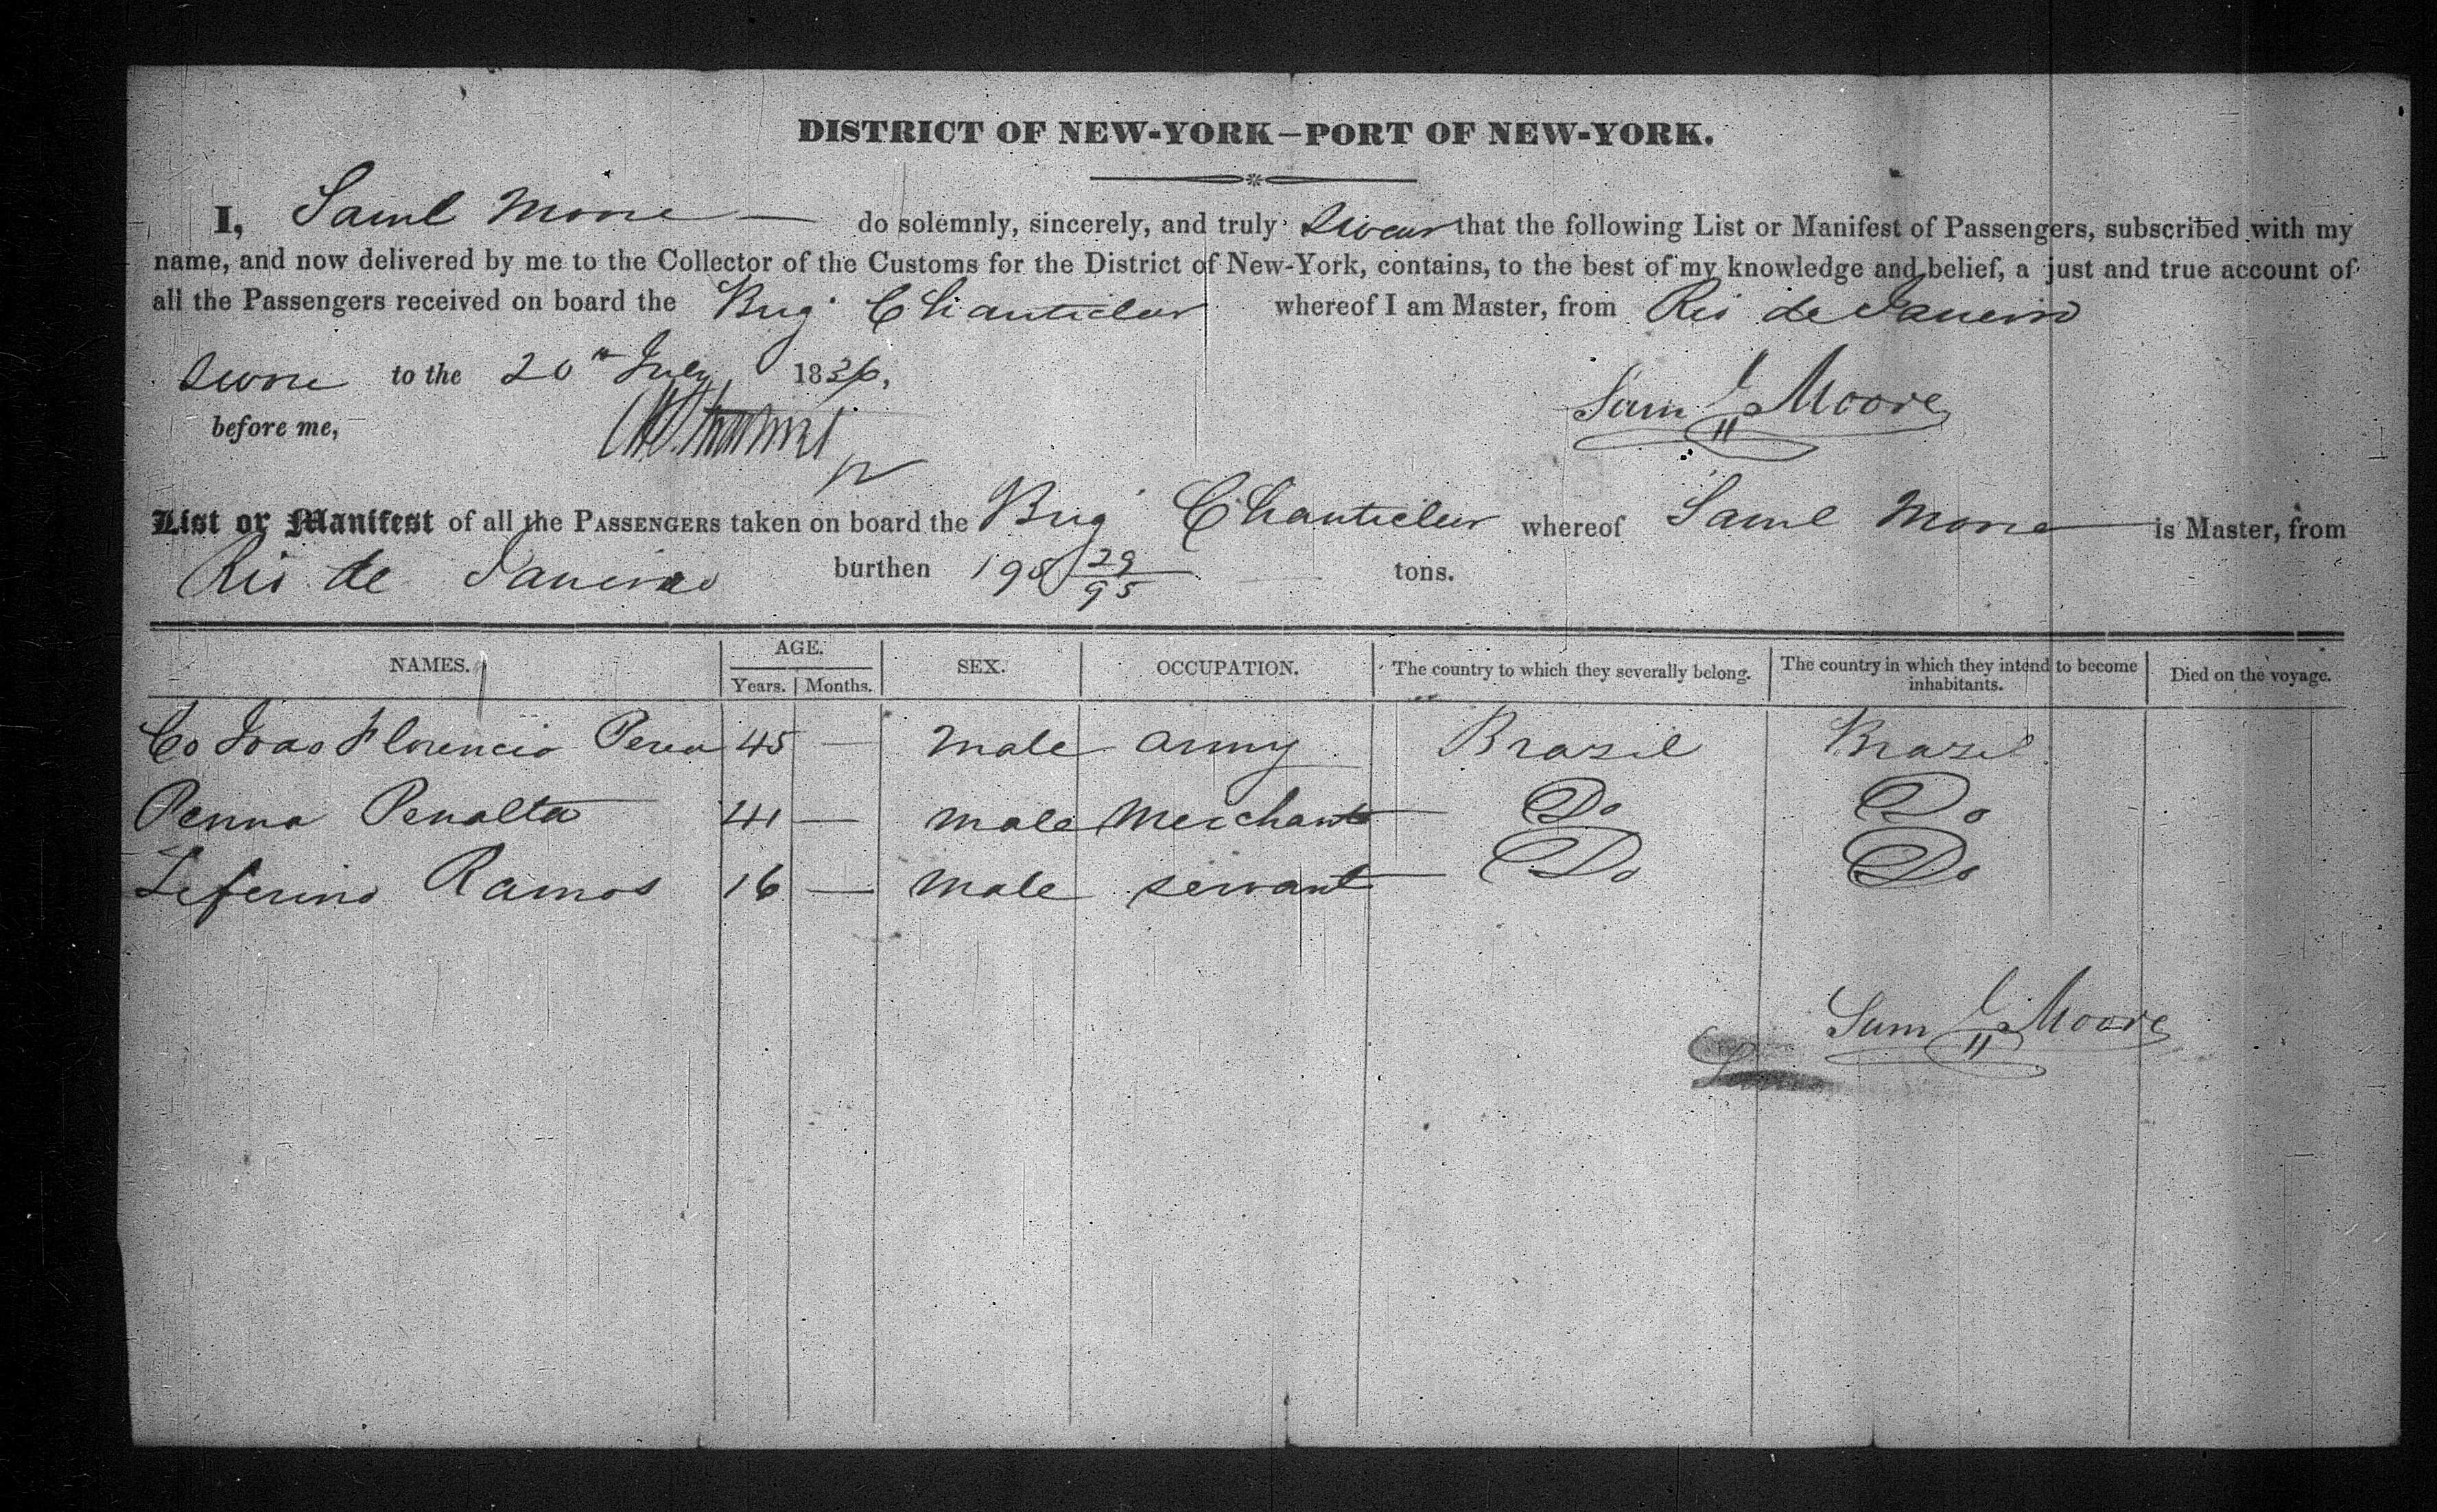 DISTRICT OF NEW-YORK—PORT OF NEW-YORK.
I, Saml Moore do solemnly, sincerely, and truly swear that the following List or Manifest of Passengers, subscribed with my
name, and now delivered by me to the Collector of the Customs for the District of New-York, contains, to the best of my knowledge and belief, a just and true account of
all the Passengers received on board the Brig Chanticleer whereof I am Master, from Rio de Janeiro
Sworn to the 20th July 1836.
before me,
Sam l Moore
List or Manifest of all the PASSENGERS taken on board the Brig Chanticleer whereof Saml Moore is Master, from
Rio de Janeiro burthen 198 29/95 tons.
NAMES. AGE. SEX. OCCUPATION. The country to which they severally belong. The country in which they intend to become inhabitants. Died on the voyage.
Years. Months.
Co Joao Florencio 45 — Male army Brazil Brazil
Penna Penalta 41 — Male Merchant Do Do
Zeferino Ramos 16 — Male servant Do Do
Sam l Moore